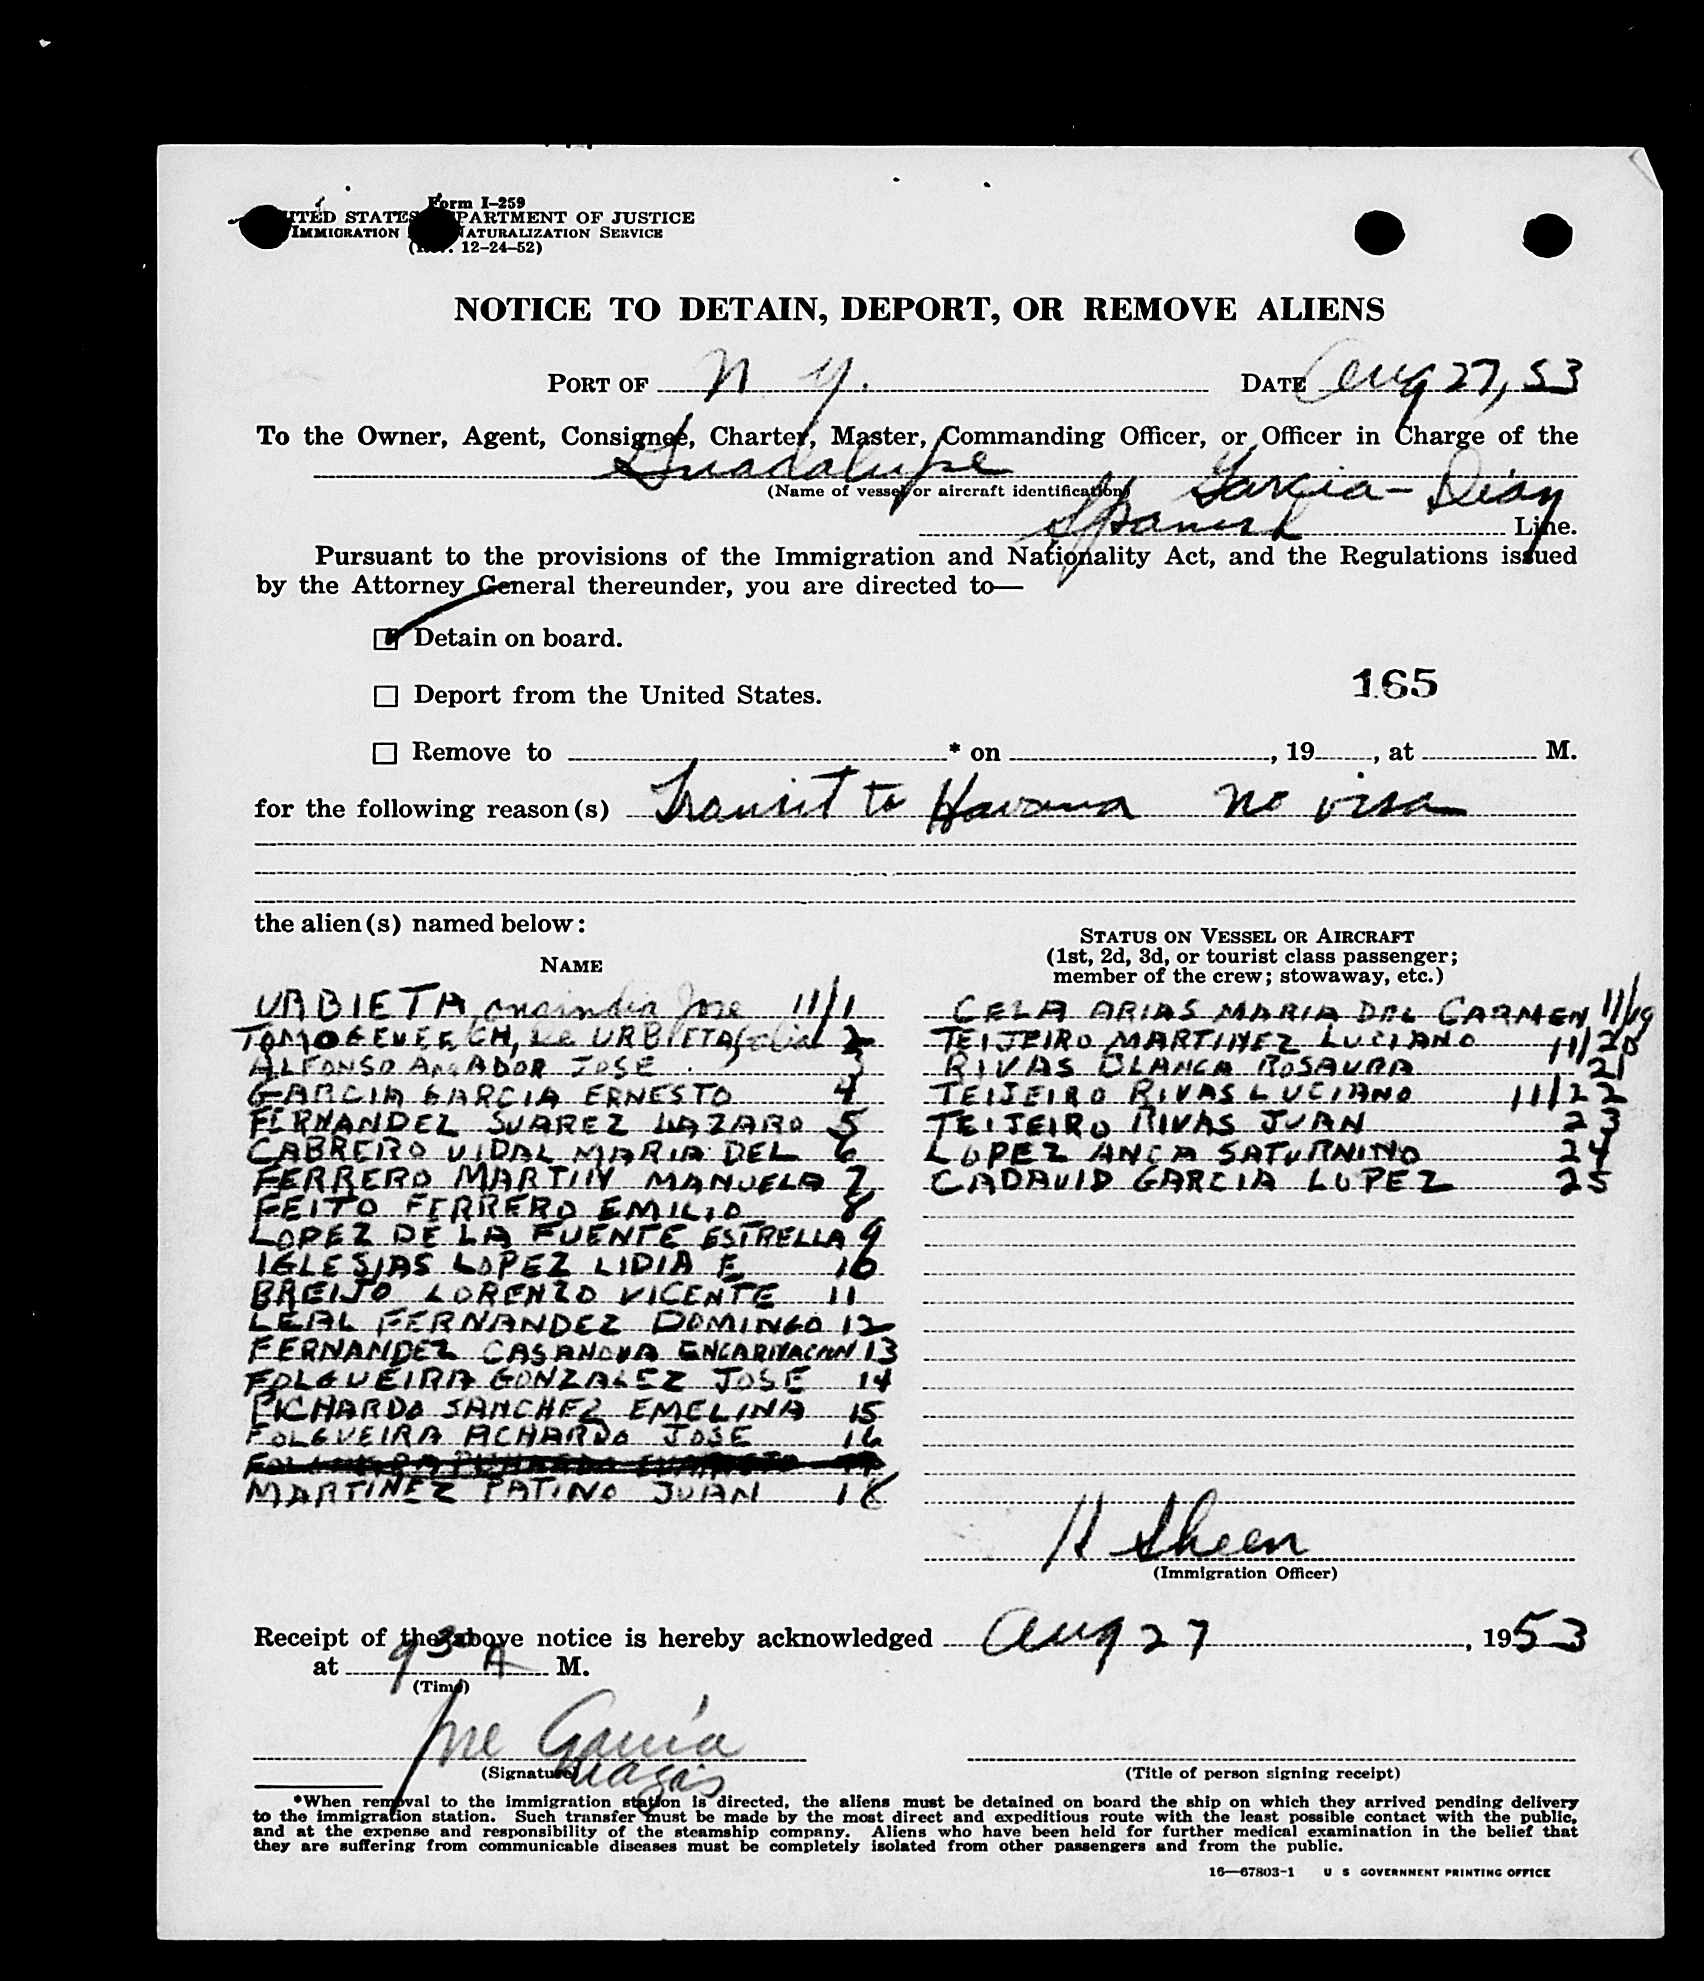 Form I-259
UNITED STATES DEPARTMENT OF JUSTICE
IMMIGRATION NATURALIZATION SERVICE
12-24-52)
NOTICE TO DETAIN, DEPORT, OR REMOVE ALIENS
PORT OF N Y. DATE Aug 27, 53
To the Owner, Agent, Consignee, Charter, Master, Commanding Officer, or Officer in Charge of the
Guadalupe
(Name of vessel or aircraft identification) Garcia-Diaz
Spanish Line.
Pursuant to the provisions of the Immigration and Nationality Act, and the Regulations issued
by the Attorney General thereunder, you are directed to—
Detain on board.
165
Deport from the United States.
Remove to * on , 19 , at M.
for the following reason(s) Transit to Havana no visa
the alien(s) named below:
NAME
STATUS ON VESSEL OR AIRCRAFT
(1st, 2d, 3d, or tourist class passenger;
member of the crew; stowaway, etc.)
URBIETA Jose 11/1
URBIETA 2
ALFONSO JOSE 3
GARCIA GARCIA ERNESTO 4
FERNANDEZ SUAREZ LAZARO 5
CABRERO VIDAL MARIA DEL 6
FERRERO MARTIN MANUELA 7
FEITO FERRERO EMILIO 8
LOPEZ DE LA FUENTE ESTRELLA 9
IGLESIAS LOPEZ LIDIA E 10
BREIJO LORENZO VICENTE 11
LEAL FERNANDEZ DOMINGO 12
FERNANDEZ CASANOVA ENCARNACION 13
FOLGUEIRA GONZALEZ JOSE 14
PICHARDO SANCHEZ EMELINA 15
FOLGUEIRA PICHARDO JOSE 16
MARTINEZ PATINO JUAN 18
CELA ARIAS MARIA DEL CARMEN 11/19
TEIJEIRO MARTINEZ LUCIANO 11/20
RIVAS BLANCA ROSAURA 21
TEIJEIRO RIVAS LUCIANO 11/22
TEIJEIRO RIVAS JUAN 23
LOPEZ ANCA SATURNINO 24
CADAVID GARCIA LOPEZ 25
H Sheen
(Immigration Officer)
Receipt of the above notice is hereby acknowledged Aug 27, 1953
at 9 30 A M.
(Time)
Jose Garcia
(Signature)
(Title of person signing receipt)
*When removal to the immigration station is directed, the aliens must be detained on board the ship on which they arrived pending delivery
to the immigration station. Such transfer must be made by the most direct and expeditious route with the least possible contact with the public,
and at the expense and responsibility of the steamship company. Aliens who have been held for further medical examination in the belief that
they are suffering from communicable diseases must be completely isolated from other passengers and from the public.
16—67803-1 U S GOVERNMENT PRINTING OFFICE